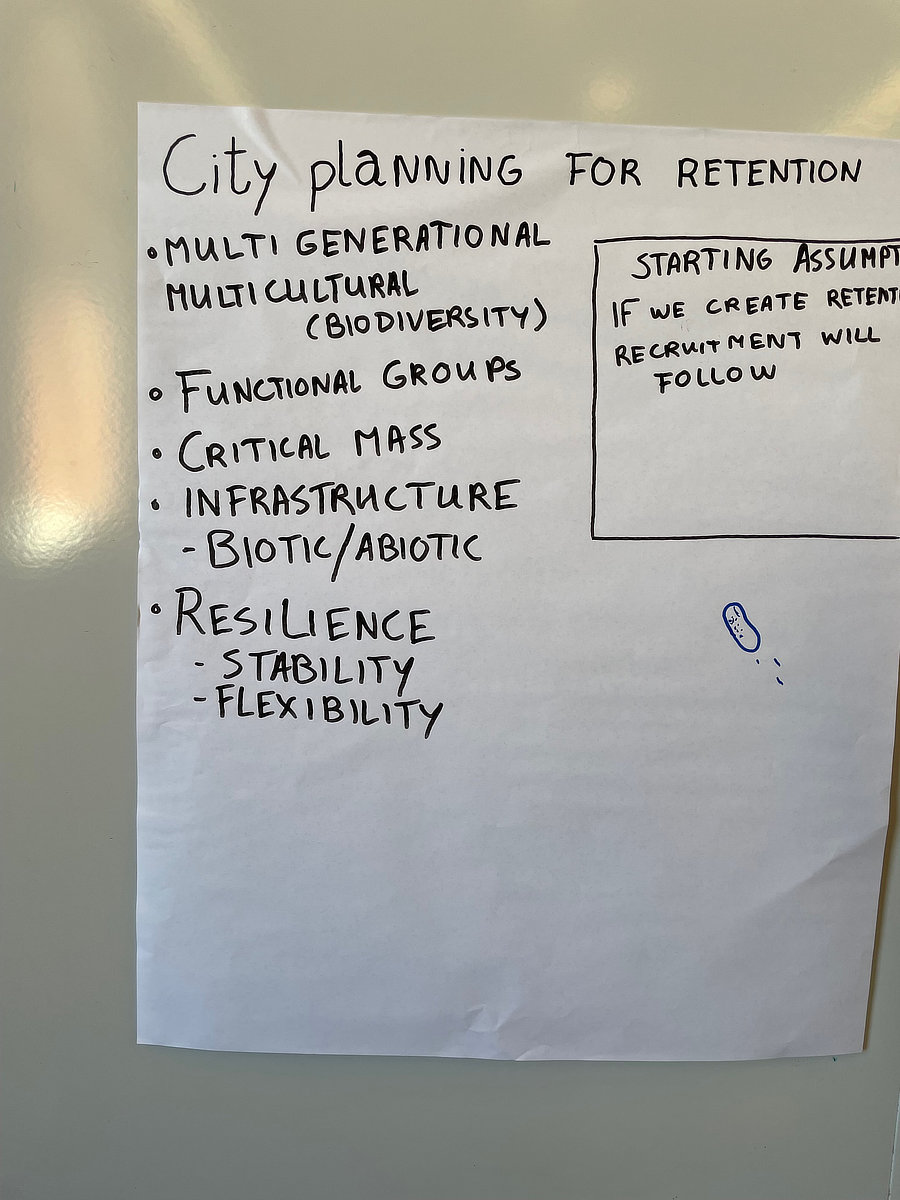 City planning FOR RETENTION
• MULTI GENERATIONAL
MULTICULTURAL
(BIODIVERSITY)
• FUNCTIONAL GROUPS
• CRITICAL MASS
• INFRASTRUCTURE
- BIOTIC/ABIOTIC
• RESILIENCE
- STABILITY
- FLEXIBILITY
STARTING ASSUMPT
IF WE CREATE RETENT
RECRUITMENT WILL
FOLLOW